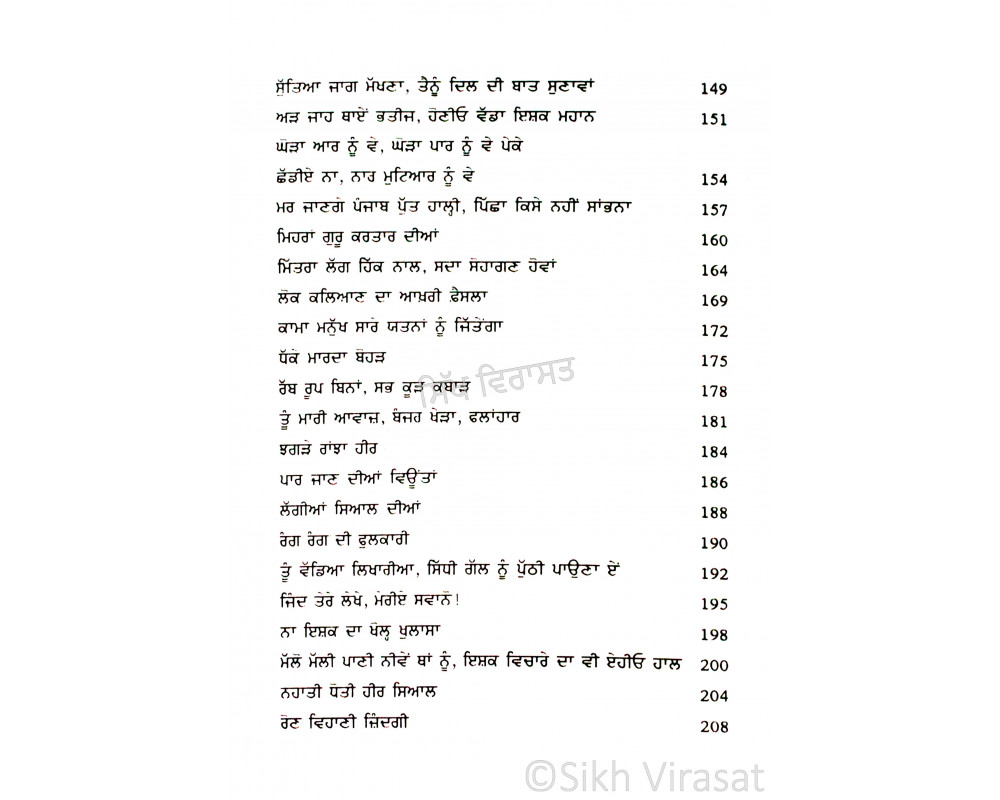 ਸੁੱਤਿਆ ਜਾਗ ਮੱਖਣਾ, ਤੈਨੂੰ ਦਿਲ ਦੀ ਬਾਤ ਸੁਣਾਵਾਂ 149
ਅੜ ਜਾਹ ਥਾਏਂ ਭਤੀਜ, ਹੋਣੀਓਂ ਵੱਡਾ ਇਸ਼ਕ ਮਹਾਨ 151
ਘੋੜਾ ਆਰ ਨੂੰ ਵੇ, ਘੋੜਾ ਪਾਰ ਨੂੰ ਵੇ ਪੇਕੇ
ਛੱਡੀਏ ਨਾ, ਨਾਰ ਮੁਟਿਆਰ ਨੂੰ ਵੇ 154
ਮਰ ਜਾਣਗੇ ਪੰਜਾਬ ਪੁੱਤ ਹਾਲ੍ਹੀ, ਪਿੱਛਾ ਕਿਸੇ ਨਹੀਂ ਸਾਂਭਨਾ 157
ਮਿਹਰਾਂ ਗੁਰੂ ਕਰਤਾਰ ਦੀਆਂ 160
ਮਿੱਤਰਾ ਲੱਗ ਹਿੱਕ ਨਾਲ, ਸਦਾ ਸੋਹਾਗਣ ਹੋਵਾਂ 164
ਲੋਕ ਕਲਿਆਣ ਦਾ ਆਖ਼ਰੀ ਫ਼ੈਸਲਾ 169
ਕਾਮਾ ਮਨੁੱਖ ਸਾਰੇ ਯਤਨਾਂ ਨੂੰ ਜਿੱਤੇਂਗਾ 172
ਧੱਕੇ ਮਾਰਦਾ ਬੋਹੜ 175
ਰੱਬ ਰੂਪ ਬਿਨਾਂ, ਸਭ ਕੂੜ ਕਬਾੜ 178
ਤੂੰ ਮਾਰੀ ਆਵਾਜ਼, ਬੰਜਹ ਖੇੜਾ, ਫਲਾਂਹਾਰ 181
ਝਗੜੇ ਰਾਂਝਾ ਹੀਰ 184
ਪਾਰ ਜਾਣ ਦੀਆਂ ਵਿਉਂਤਾਂ 186
ਲੱਗੀਆਂ ਸਿਆਲ ਦੀਆਂ 188
ਰੰਗ ਰੰਗ ਦੀ ਫੁਲਕਾਰੀ 190
ਤੂੰ ਵੱਡਿਆ ਲਿਖਾਰੀਆ, ਸਿੱਧੀ ਗੱਲ ਨੂੰ ਪੁੱਠੀ ਪਾਉਣਾ ਏਂ 192
ਜਿੰਦ ਤੇਰੇ ਲੇਖੇ, ਮੇਰੀਏ ਸਵਾਨੋਂ! 195
ਨਾ ਇਸ਼ਕ ਦਾ ਖੋਲ੍ਹ ਖੁਲਾਸਾ 198
ਮੱਲੋ ਮੱਲੀ ਪਾਣੀ ਨੀਵੇਂ ਥਾਂ ਨੂੰ, ਇਸ਼ਕ ਵਿਚਾਰੇ ਦਾ ਵੀ ਏਹੀਓ ਹਾਲ 200
ਨਹਾਤੀ ਧੋਤੀ ਹੀਰ ਸਿਆਲ 204
ਰੋਣ ਵਿਹਾਣੀ ਜ਼ਿੰਦਗੀ 208
ਸਿੱਖ ਵਿਰਾਸਤ
©Sikh Virasat